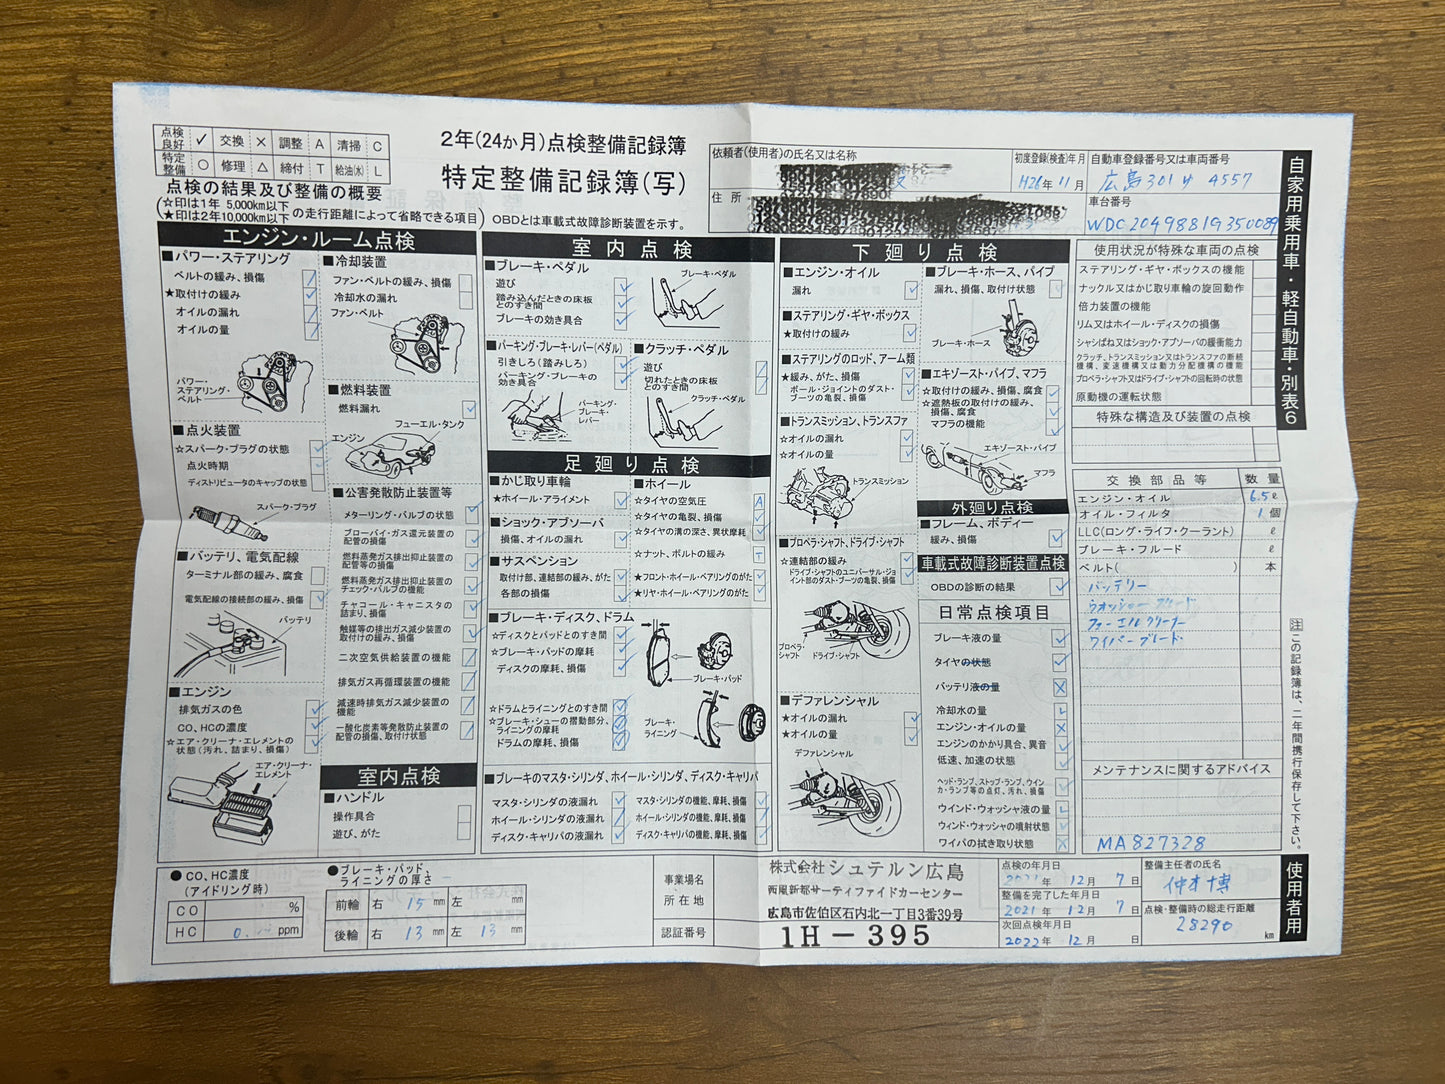 点検良好 ✓ 交換 × 調整 A 清掃 C
特定整備 ○ 修理 △ 締付 T 給油(水) L
2年(24か月)点検整備記録簿
特定整備記録簿(写)
点検の結果及び整備の概要
☆印は1年 5,000km以下
★印は2年10,000km以下
の走行距離によって省略できる項目
OBDとは車載式故障診断装置を示す。
依頼者(使用者)の氏名又は名称
住所
初度登録(検査)年月
H26年11月
自動車登録番号又は車両番号
広島301 4557
車台番号
WDC2049881G350089
自家用乗用車・軽自動車・別表6
エンジン・ルーム点検
■パワー・ステアリング
ベルトの緩み、損傷
★取付けの緩み
オイルの漏れ
オイルの量
パワー・ステアリング・ベルト
■点火装置
☆スパーク・プラグの状態
点火時期
ディストリビュータのキャップの状態
スパーク・プラグ
■バッテリ、電気配線
ターミナル部の緩み、腐食
電気配線の接続部の緩み、損傷
バッテリ
■エンジン
排気ガスの色
CO、HCの濃度
☆エア・クリーナ・エレメントの状態(汚れ、詰まり、損傷)
エア・クリーナ・エレメント
■冷却装置
ファン・ベルトの緩み、損傷
冷却水の漏れ
ファン・ベルト
■燃料装置
燃料漏れ
フューエル・タンク
エンジン
■公害発散防止装置等
メターリング・バルブの状態
ブローバイ・ガス還元装置の配管の損傷
燃料蒸発ガス排出抑止装置の配管等の損傷
燃料蒸発ガス排出抑止装置のチェック・バルブの機能
チャコール・キャニスタの詰まり、損傷
触媒等の排出ガス減少装置の取付けの緩み、損傷
二次空気供給装置の機能
排気ガス再循環装置の機能
減速時排気ガス減少装置の機能
一酸化炭素等発散防止装置の配管の損傷、取付状態
室内点検
■ハンドル
操作具合
遊び、がた
室内点検
■ブレーキ・ペダル
遊び
踏み込んだときの床板とのすき間
ブレーキの効き具合
ブレーキ・ペダル
■パーキング・ブレーキ・レバー(ペダル)
引きしろ(踏みしろ)
パーキング・ブレーキの効き具合
パーキング・ブレーキ・レバー
■クラッチ・ペダル
遊び
切れたときの床板とのすき間
クラッチ・ペダル
足廻り点検
■かじ取り車輪
★ホイール・アライメント
■ショック・アブソーバ
損傷、オイルの漏れ
■サスペンション
取付部、連結部の緩み、がた
各部の損傷
■ホイール
☆タイヤの空気圧 A
☆タイヤの亀裂、損傷
☆タイヤの溝の深さ、異状摩耗
☆ナット、ボルトの緩み T
★フロント・ホイール・ベアリングのがた
★リヤ・ホイール・ベアリングのがた
■ブレーキ・ディスク、ドラム
☆ディスクとパッドとのすき間
☆ブレーキ・パッドの摩耗
ディスクの摩耗、損傷
ブレーキ・パッド
☆ドラムとライニングとのすき間
☆ブレーキ・シューの摺動部分、ライニングの摩耗
ドラムの摩耗、損傷
ブレーキ・ライニング
■ブレーキのマスタ・シリンダ、ホイール・シリンダ、ディスク・キャリパ
マスタ・シリンダの液漏れ
ホイール・シリンダの液漏れ
ディスク・キャリパの液漏れ
マスタ・シリンダの機能、摩耗、損傷
ホイール・シリンダの機能、摩耗、損傷
ディスク・キャリパの機能、摩耗、損傷
下廻り点検
■エンジン・オイル
漏れ
■ステアリング・ギヤ・ボックス
★取付けの緩み
■ステアリングのロッド、アーム類
★緩み、がた、損傷
ボール・ジョイントのダスト・ブーツの亀裂、損傷
■トランスミッション、トランスファ
☆オイルの漏れ
☆オイルの量
トランスミッション
■プロペラ・シャフト、ドライブ・シャフト
☆連結部の緩み
ドライブ・シャフトのユニバーサル・ジョイント部のダスト・ブーツの亀裂、損傷
プロペラ・シャフト
ドライブ・シャフト
■デファレンシャル
★オイルの漏れ
★オイルの量
デファレンシャル
■ブレーキ・ホース、パイプ
漏れ、損傷、取付状態
ブレーキ・ホース
■エキゾースト・パイプ、マフラ
☆取付けの緩み、損傷、腐食
☆遮熱板の取付けの緩み、損傷、腐食
マフラの機能
エキゾースト・パイプ
マフラ
外廻り点検
■フレーム、ボディー
緩み、損傷
車載式故障診断装置点検
OBDの診断の結果
日常点検項目
ブレーキ液の量
タイヤの状態
バッテリ液の量
冷却水の量
エンジン・オイルの量
エンジンのかかり具合、異音
低速、加速の状態
ヘッド・ランプ、ストップ・ランプ、ウインカ・ランプ等の点灯、汚れ、損傷
ウインド・ウォッシャ液の量
ウィンド・ウォッシャの噴射状態
ワイパの拭き取り状態
使用状況が特殊な車両の点検
ステアリング・ギヤ・ボックスの機能
ナックル又はかじ取り車輪の旋回動作
倍力装置の機能
リム又はホイール・ディスクの損傷
シャシばね又はショック・アブソーバの緩衝能力
クラッチ、トランスミッション又はトランスファの断続機構、変速機構又は動力分配機構の機能
プロペラ・シャフト又はドライブ・シャフトの回転時の状態
原動機の運転状態
特殊な構造及び装置の点検
交換部品等 数量
エンジン・オイル 6.5ℓ
オイル・フィルタ 1個
LLC(ロング・ライフ・クーラント) ℓ
ブレーキ・フルード ℓ
ベルト( ) 本
バッテリー
ウオッシャーフルード
フューエルクリーナー
ワイパーブレード
メンテナンスに関するアドバイス
MA827328
注 この記録簿は、二年間携行保存して下さい。
使用者用
●CO、HC濃度(アイドリング時)
CO %
HC 0. ppm
●ブレーキ・パッド、ライニングの厚さ
前輪 右 15 mm 左 mm
後輪 右 13 mm 左 13 mm
事業場名
所在地
認証番号
株式会社シュテルン広島
西風新都サーティファイドカーセンター
広島市佐伯区石内北一丁目3番39号
1H-395
点検の年月日
2021年12月7日
整備を完了した年月日
2021年12月7日
次回点検年月日
2022年12月 日
整備主任者の氏名
仲才 博
点検・整備時の総走行距離
28290 km